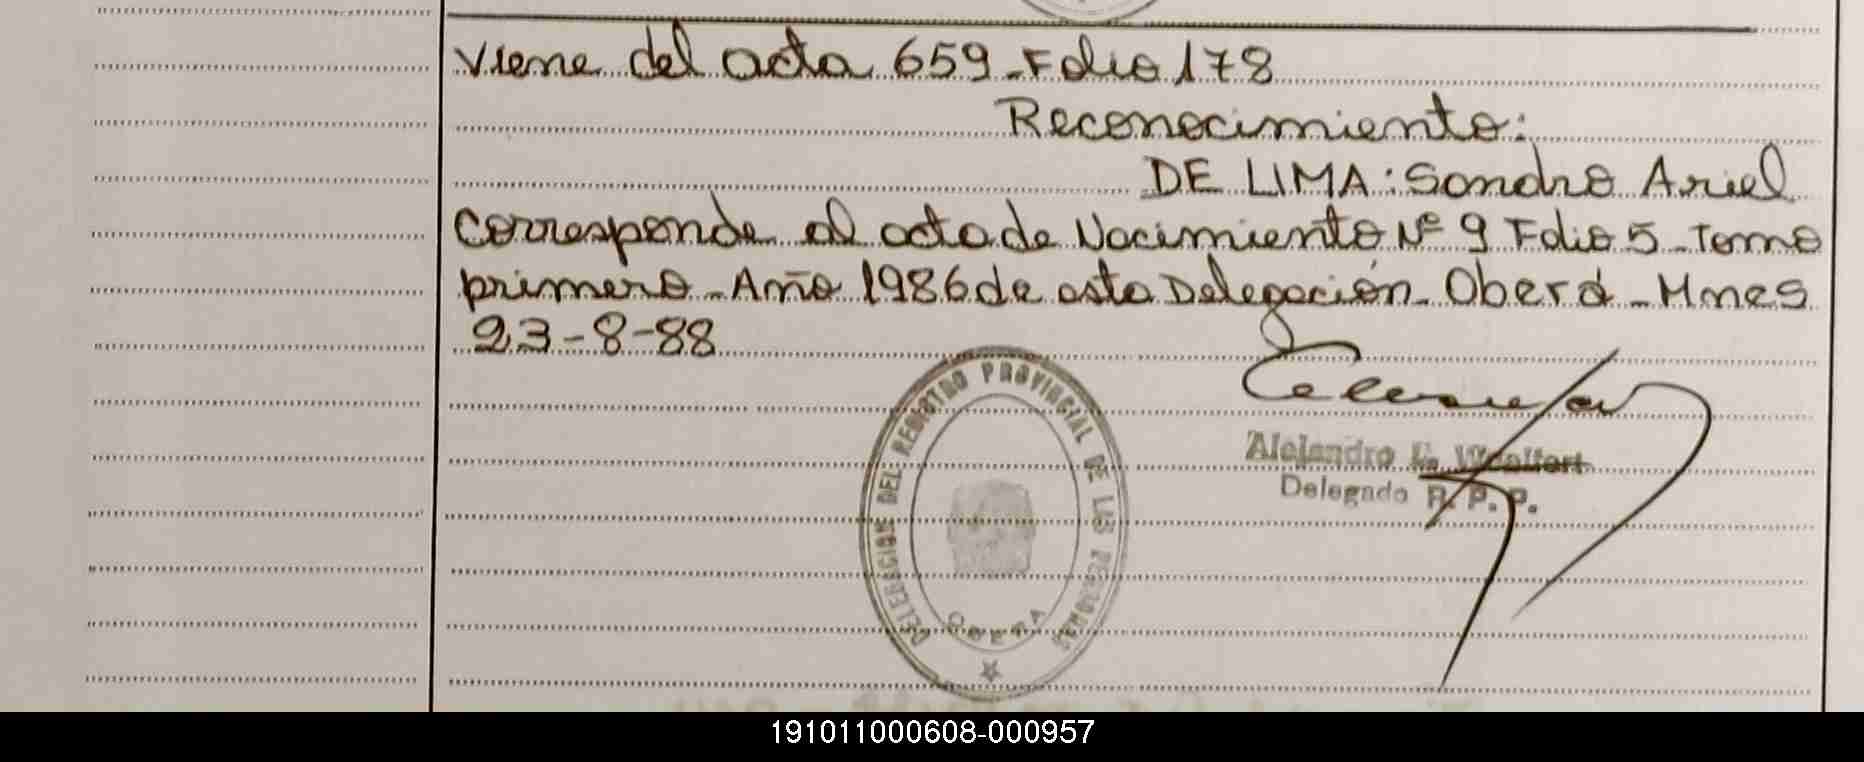 Viene del acta 659 - Folio 178
Reconocimiento:
DE LIMA: Sandro Ariel
corresponde al acta de Nacimiento Nº 9 Folio 5 - Tomo
primero - Año 1986 de esta Delegación - Oberá - Mnes
23-8-88
DELEGACION DEL REGISTRO PROVINCIAL DE LAS PERSONAS
OBERA
Alejandro
Delegado R. P. P.
191011000608-000957